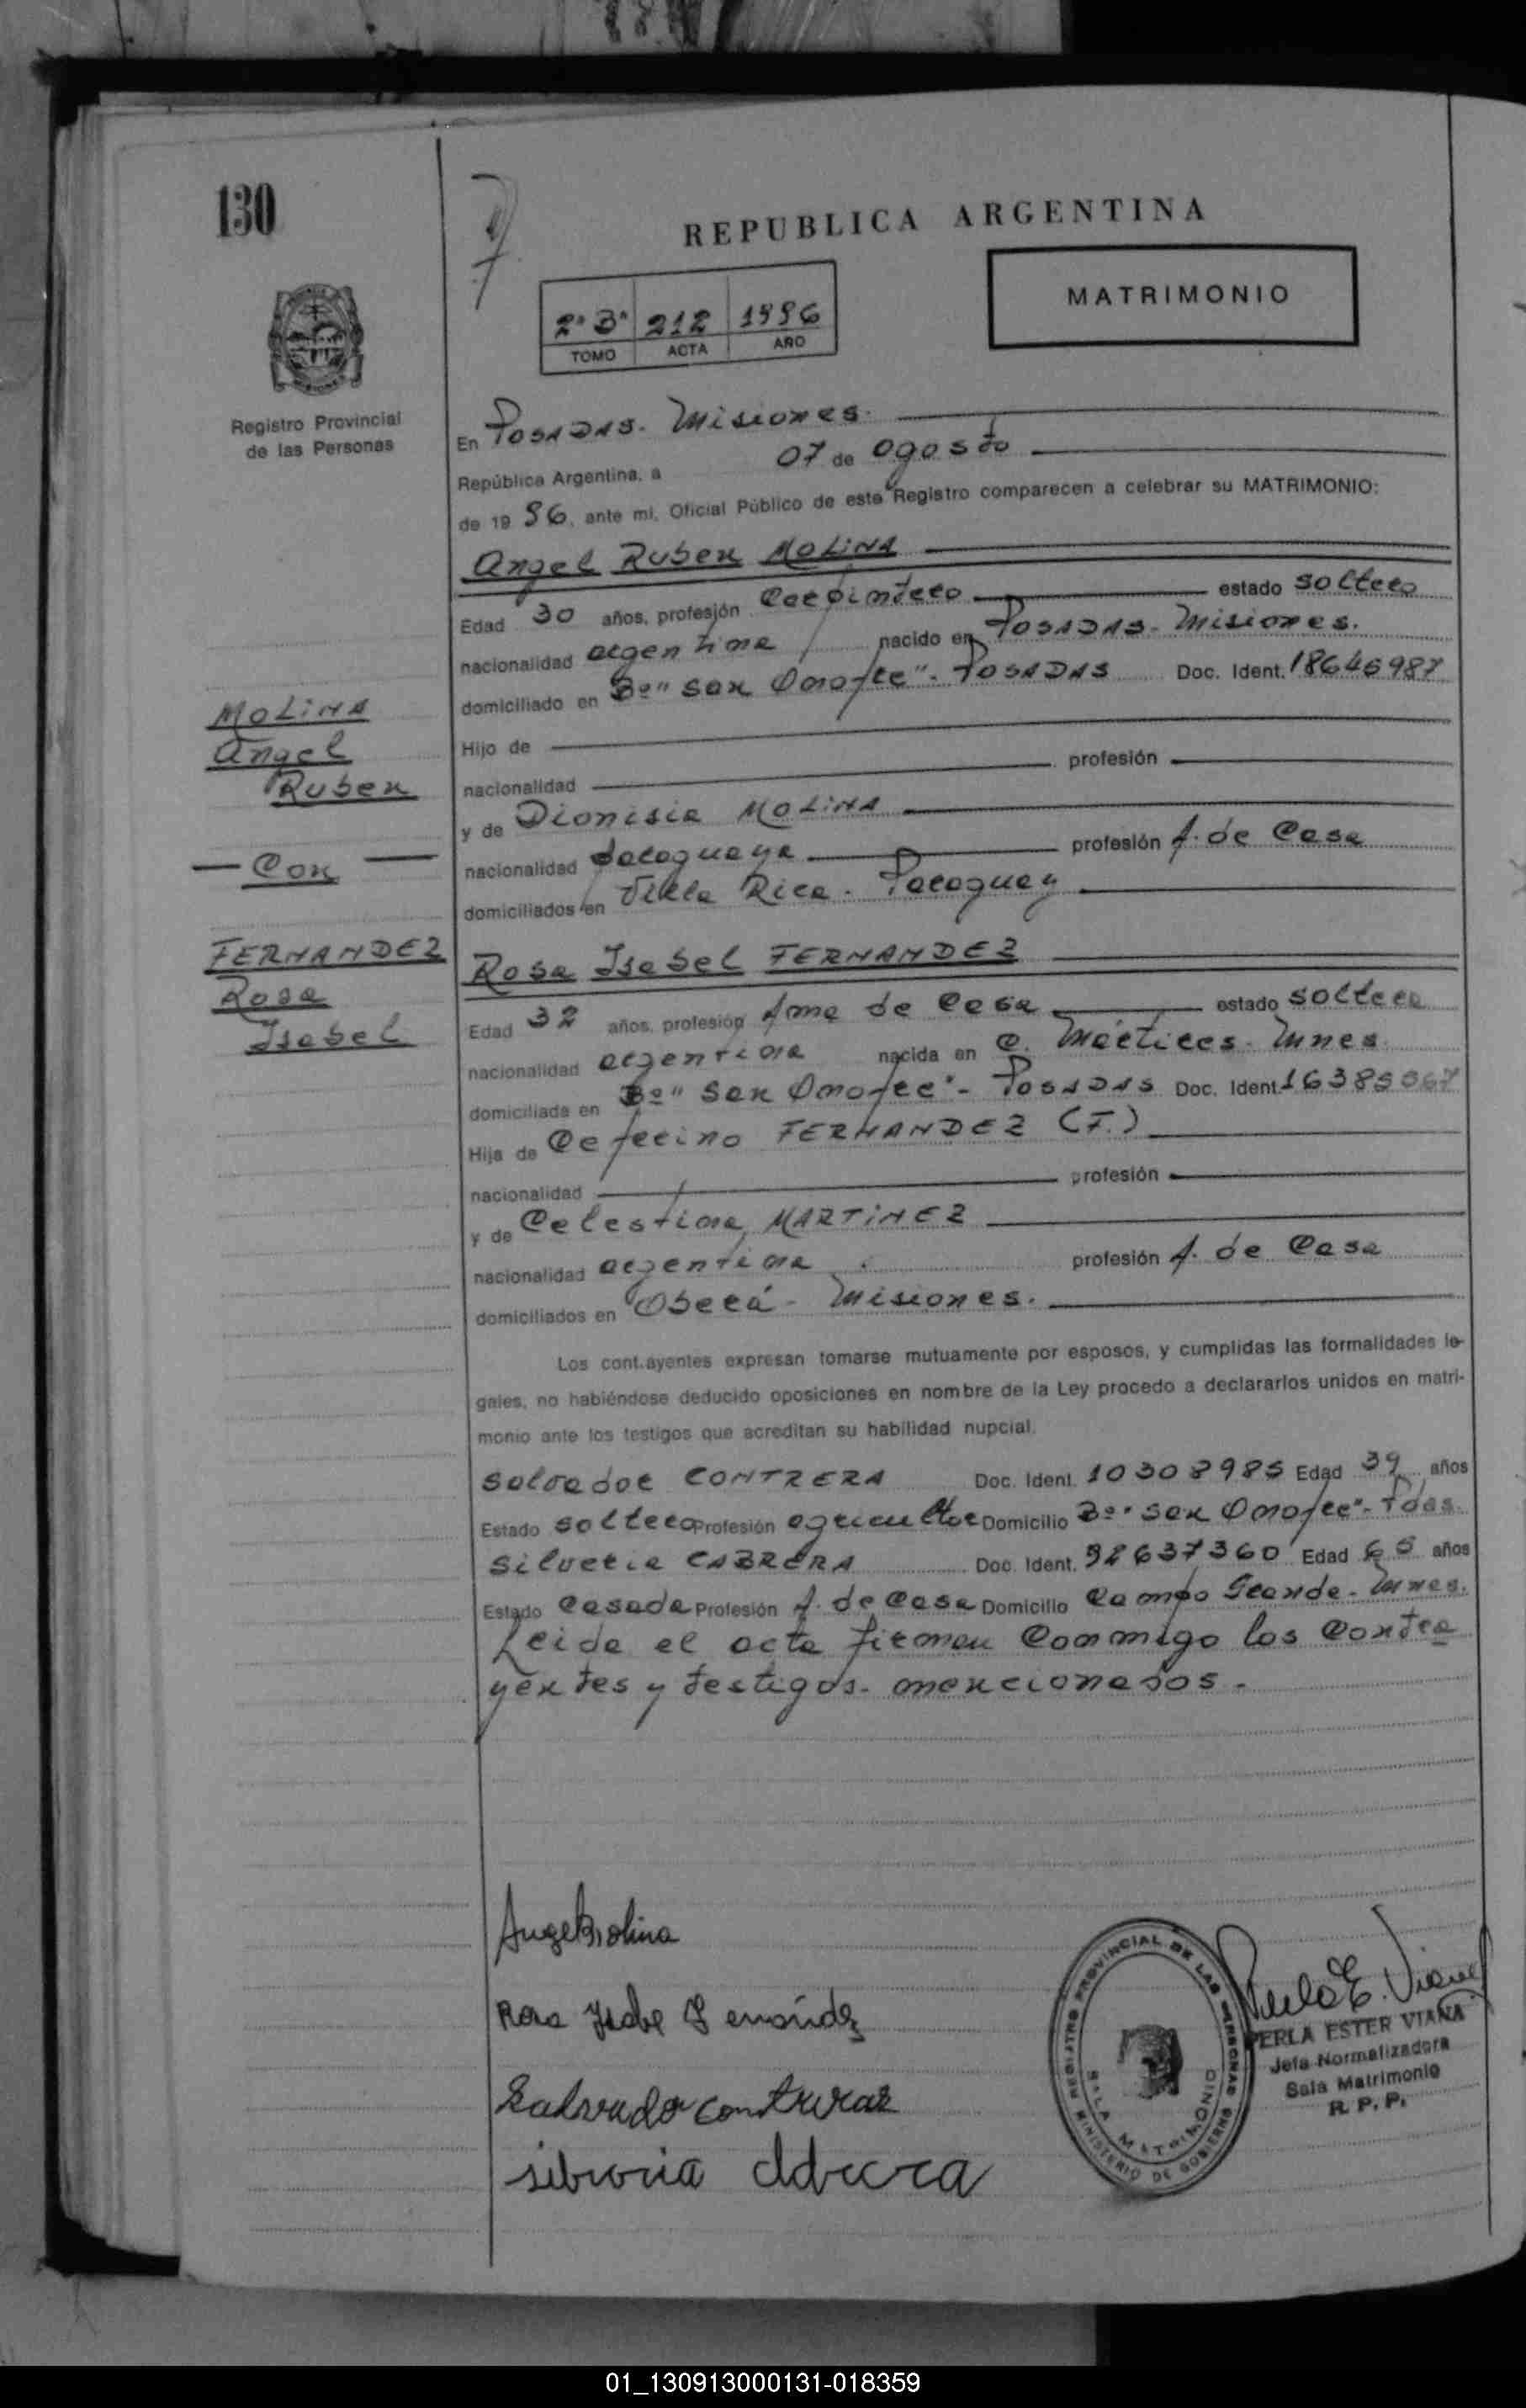 130
REPUBLICA ARGENTINA
MATRIMONIO
2º Bº 212 1996
TOMO ACTA AÑO
Registro Provincial
de las Personas
En Posadas. Misiones.
República Argentina, a 07 de agosto
de 19 96, ante mi, Oficial Público de este Registro comparecen a celebrar su MATRIMONIO:
Angel Ruben MOLINA
Edad 30 años, profesión Carpintero estado soltero
nacionalidad argentina nacido en Posadas - Misiones.
domiciliado en Bº "San Onofre" - Posadas Doc. Ident. 18645987
Hijo de
nacionalidad profesión
y de Dionisia MOLINA
nacionalidad paraguaya profesión A. de Casa
domiciliados en Villa Rica. Paraguay
MOLINA
Angel
Ruben
— Con —
FERNANDEZ
Rosa
Isabel
Rosa Isabel FERNANDEZ
Edad 32 años, profesión Ama de Casa estado soltera
nacionalidad argentina nacida en C. Mártires - Mnes
domiciliada en Bº "San Onofre" - Posadas Doc. Ident. 16385567
Hija de Ceferino FERNANDEZ (F.)
nacionalidad profesión
y de Celestina MARTINEZ
nacionalidad argentina profesión A. de Casa
domiciliados en Oberá - Misiones.
Los cont.ayentes expresan tomarse mutuamente por esposos, y cumplidas las formalidades le-
gales, no habiéndose deducido oposiciones en nombre de la Ley procedo a declararlos unidos en matri-
monio ante los testigos que acreditan su habilidad nupcial.
Salvador CONTRERA Doc. Ident. 10308985 Edad 39 años
Estado soltero Profesión agricultor Domicilio Bº "San Onofre" - Pdas.
Silveria CABRERA Doc. Ident. 92637360 Edad 65 años
Estado Casada Profesión A. de Casa Domicilio Campo Grande - Mnes.
Leida el acta firman conmigo los contra
yentes y testigos mencionados.
Angel Molina
Rosa Isabe Fernández
Salvador Contreras
REGISTRO PROVINCIAL DE LAS PERSONAS
MINISTERIO DE GOBIERNO
SALA MATRIMONIO
Perla E. Viana
PERLA ESTER VIANA
Jefa Normalizadora
Sala Matrimonio
R. P. P.
01_130913000131-018359